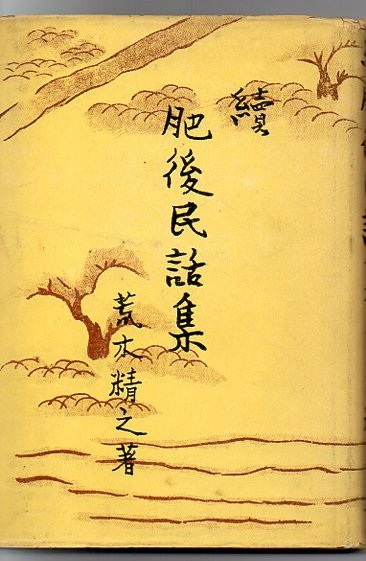 續
肥後民話集
荒木精之著